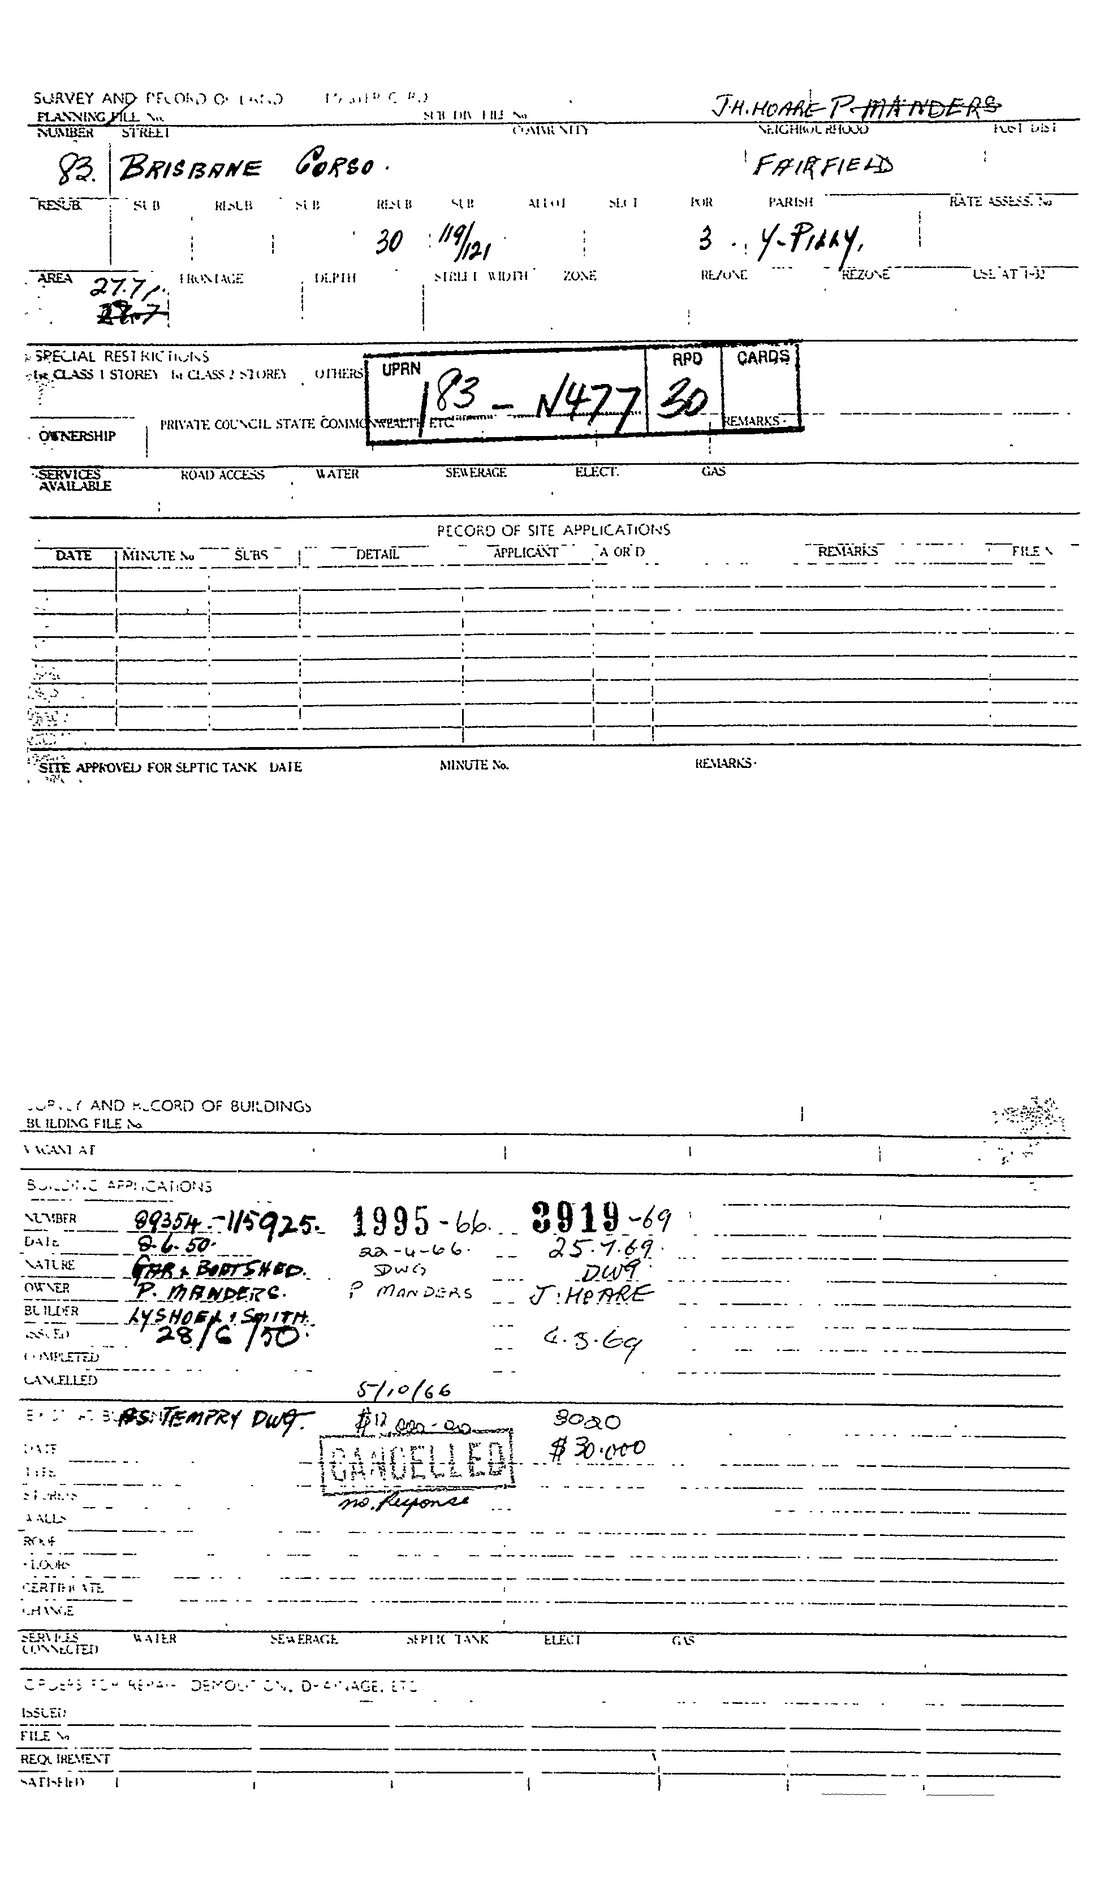 SURVEY AND RECORD OF LAND MASTER CARD
J.H. HOARE P. MANDERS
PLANNING FILE No. SUB DIV FILE No
NUMBER STREET COMMUNITY NEIGHBOURHOOD POST DIST
83. BRISBANE CORSO. FAIRFIELD
RESUB SUB RESUB SUB RESUB SUB ALLOT SECT POR PARISH RATE ASSESS. No
30 119/121 3 Y-PILLY.
AREA FRONTAGE DEPTH STREET WIDTH ZONE REZONE REZONE USE AT
27.7
28.7
SPECIAL RESTRICTIONS
1st CLASS 1 STOREY 1st CLASS 2 STOREY OTHERS
UPRN RPD CARDS
183 - N477 30
OWNERSHIP PRIVATE COUNCIL STATE COMMONWEALTH ETC REMARKS
SERVICES AVAILABLE ROAD ACCESS WATER SEWERAGE ELECT. GAS
RECORD OF SITE APPLICATIONS
DATE MINUTE No SUBS DETAIL APPLICANT A OR D REMARKS FILE N
SITE APPROVED FOR SEPTIC TANK DATE MINUTE No. REMARKS
SURVEY AND RECORD OF BUILDINGS
BUILDING FILE No
VACANT AT
BUILDING APPLICATIONS
NUMBER 89354 - 115925. 1995-66. 3919-69
DATE 8.6.50. 22-4-66. 25.7.69.
NATURE GAR & BOATSHED. DWG DWG
OWNER P. MANDERS. P MANDERS J. HOARE
BUILDER & SMITH
ISSUED 28/6/50. 69
COMPLETED
CANCELLED 5/10/66
AS TEMPRY DWG. $12,000-00 3020
DATE CANCELLED $30.000
TYPE
STORIES no. Response
WALLS
ROOF
FLOORS
CERTIFICATE
CHANGE
SERVICES CONNECTED WATER SEWERAGE SEPTIC TANK ELECT GAS
ORDERS FOR REPAIR, DEMOLITION, DRAINAGE, ETC
ISSUED
FILE No
REQUIREMENT
SATISFIED